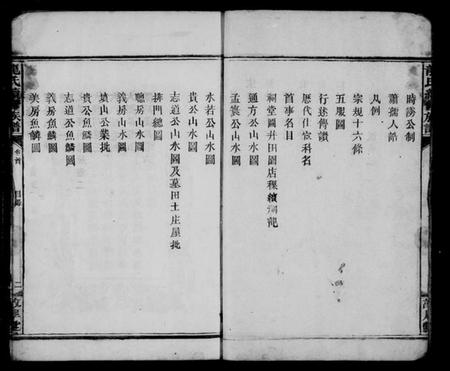 時謗公制
蕭孺人誥
凡例
宗規十六條
五服圖
行述傳讚
歷代仕宦科名
首事名目
祠堂圖并田園店穆
通方公山水圖
孟宸公山水圖
水若公山水圖
貴公山水圖
志道公山水圖及墓田土庄屋批
排門總圖
聰房山水圖
義房山水圖
墳山公業批
貴公魚鱗圖
志道公魚鱗圖
義房魚鱗圖
美房魚鱗圖
族譜
卷首
目錄
二